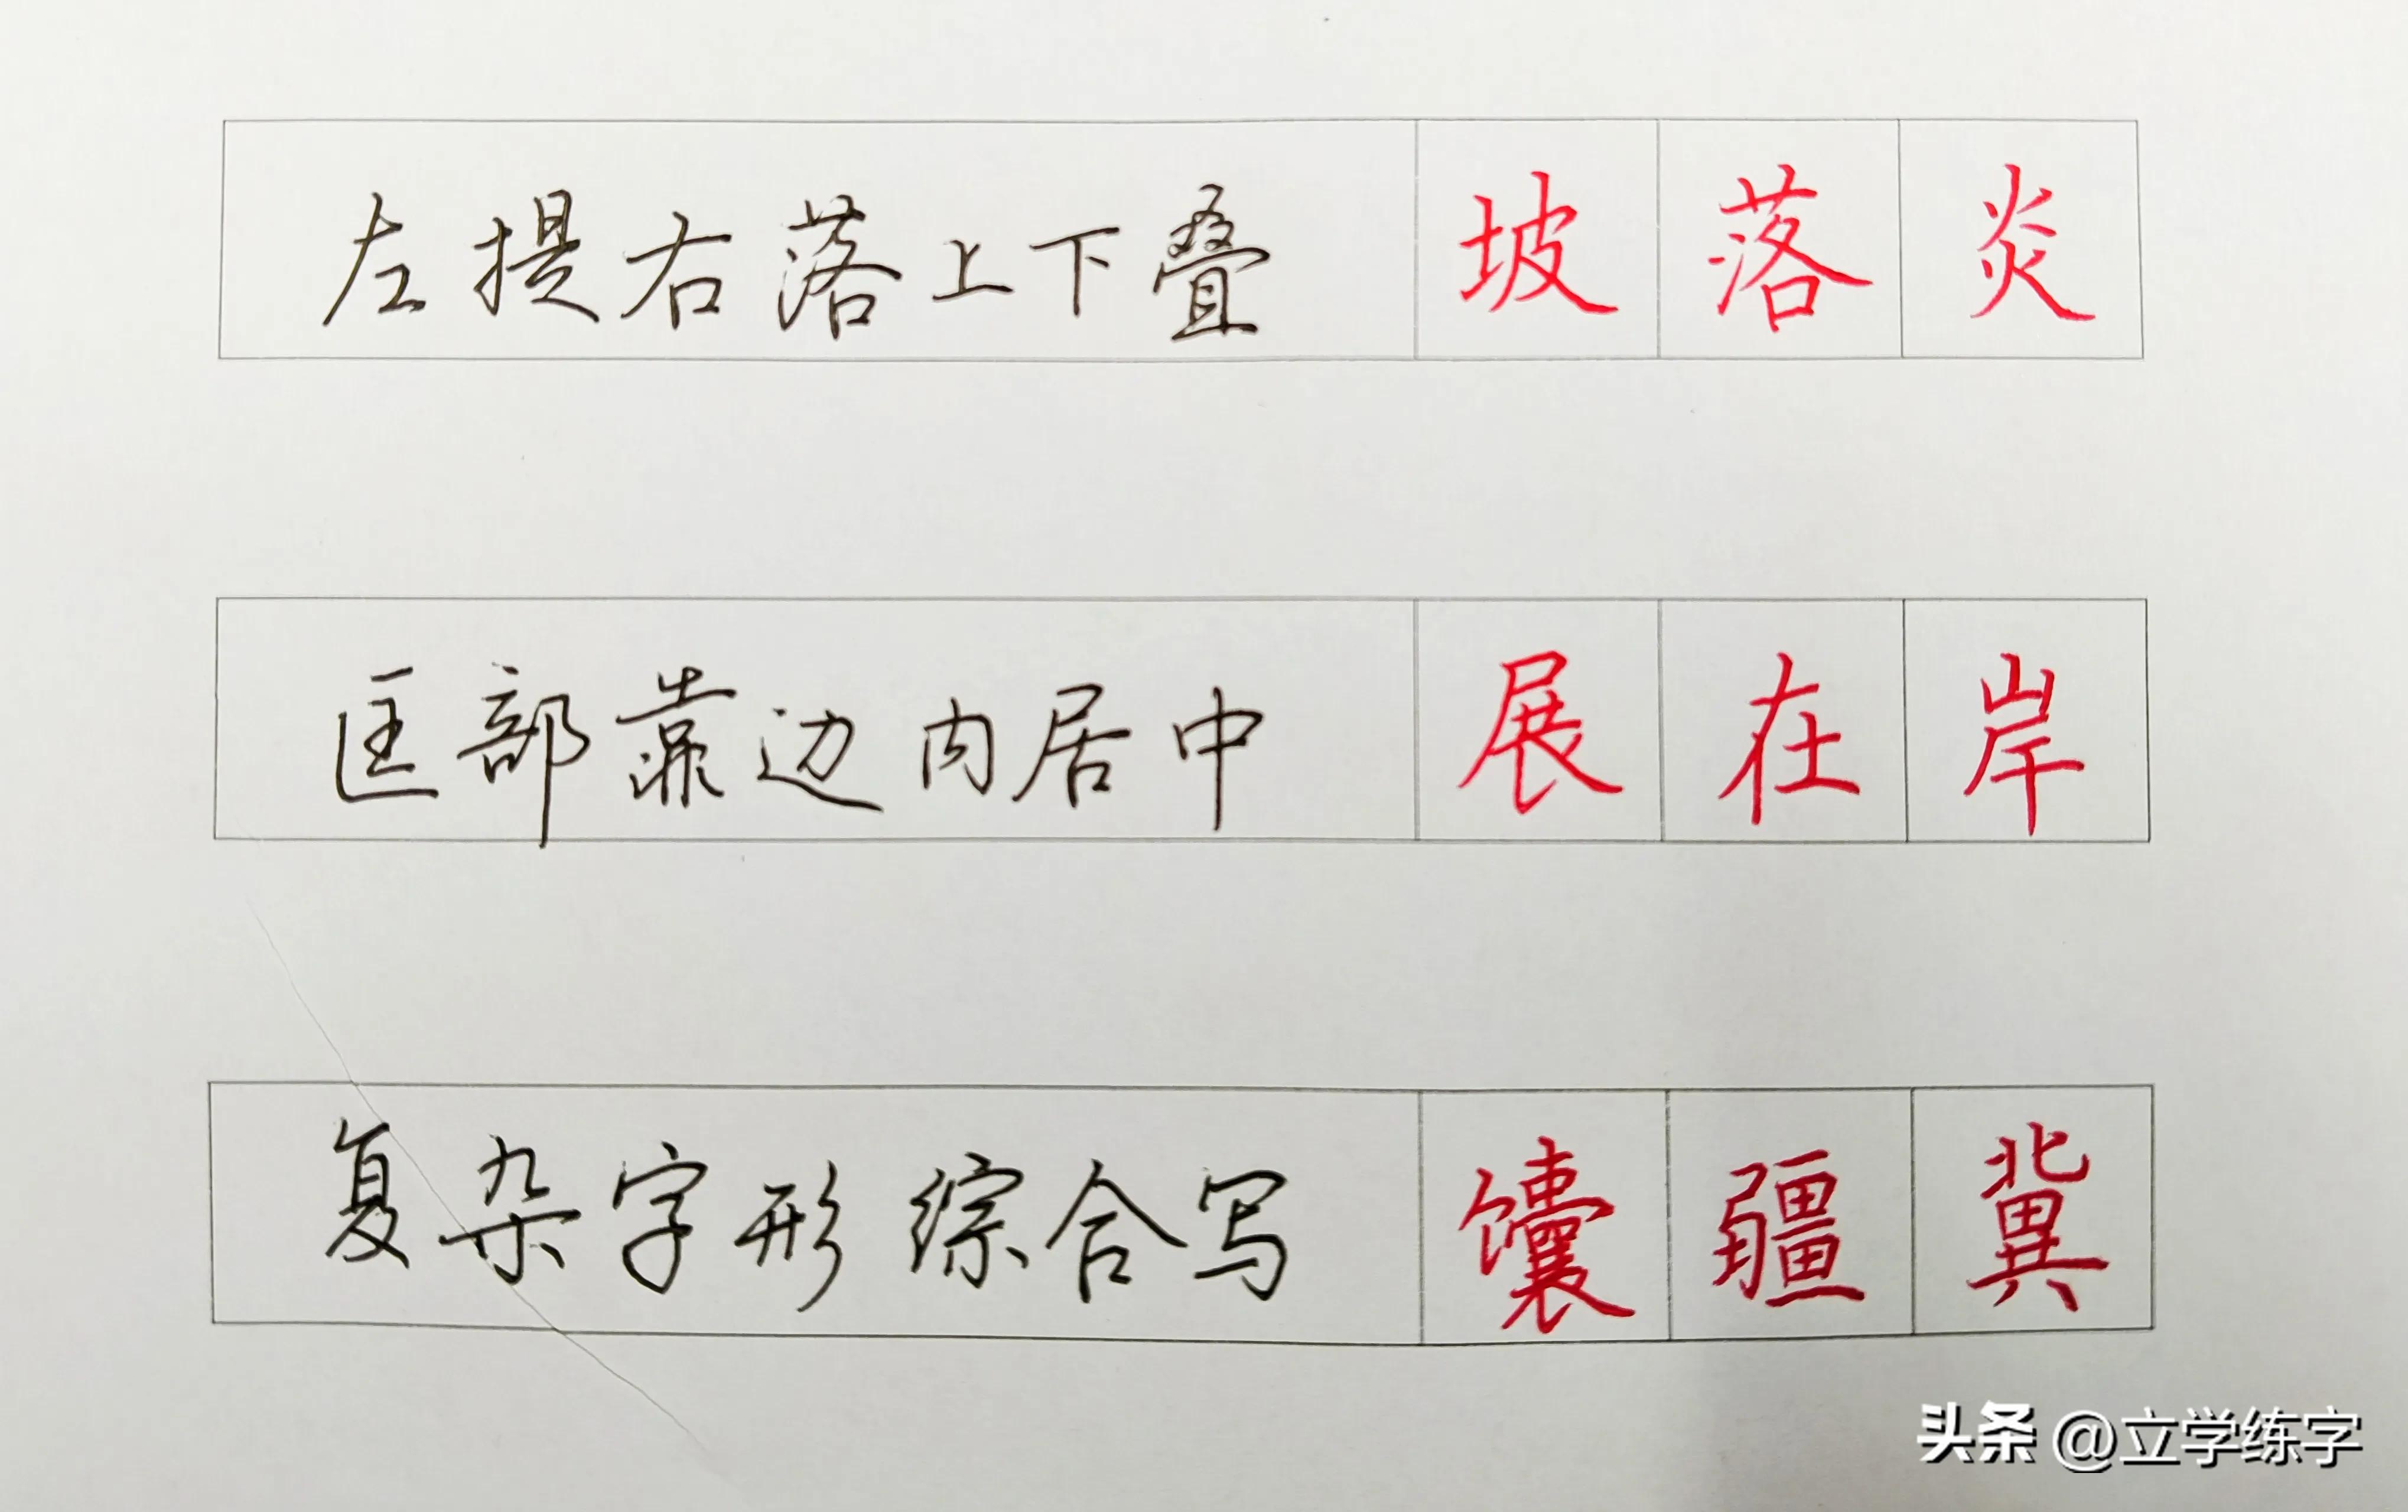 左提右落上下叠 坡 落 炎
匡部靠边内居中 展 在 岸
复杂字形综合写 馕 疆 冀
头条 @立学练字